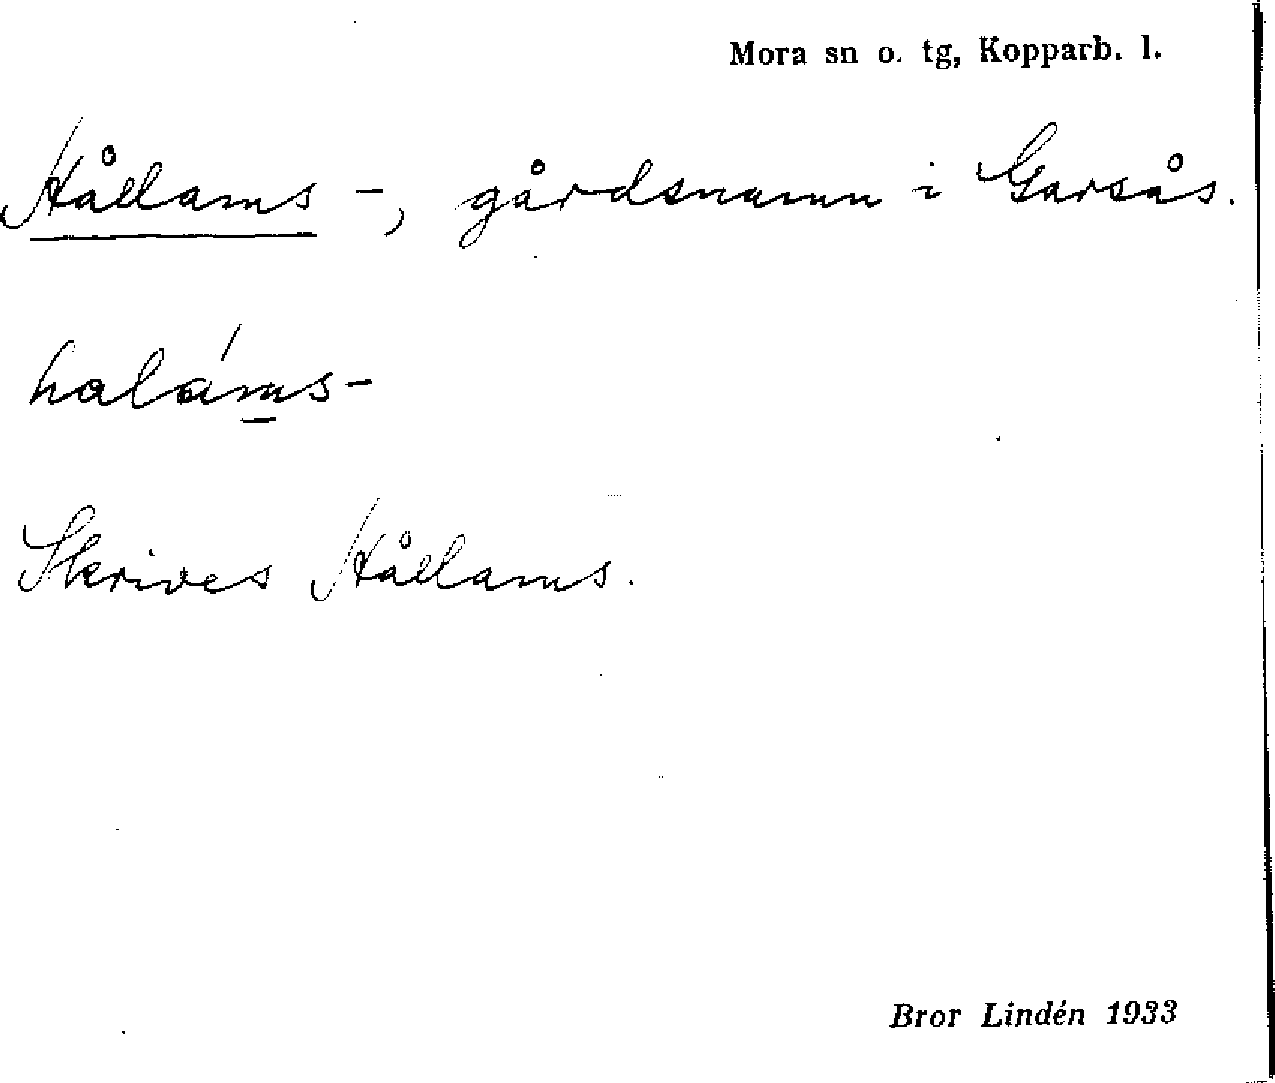 Mora sn o. tg, Kopparb. l.
Hållams -, gårdsnamn i Garsås.
haláms-
Skrives Hållams.
Bror Lindén 1933